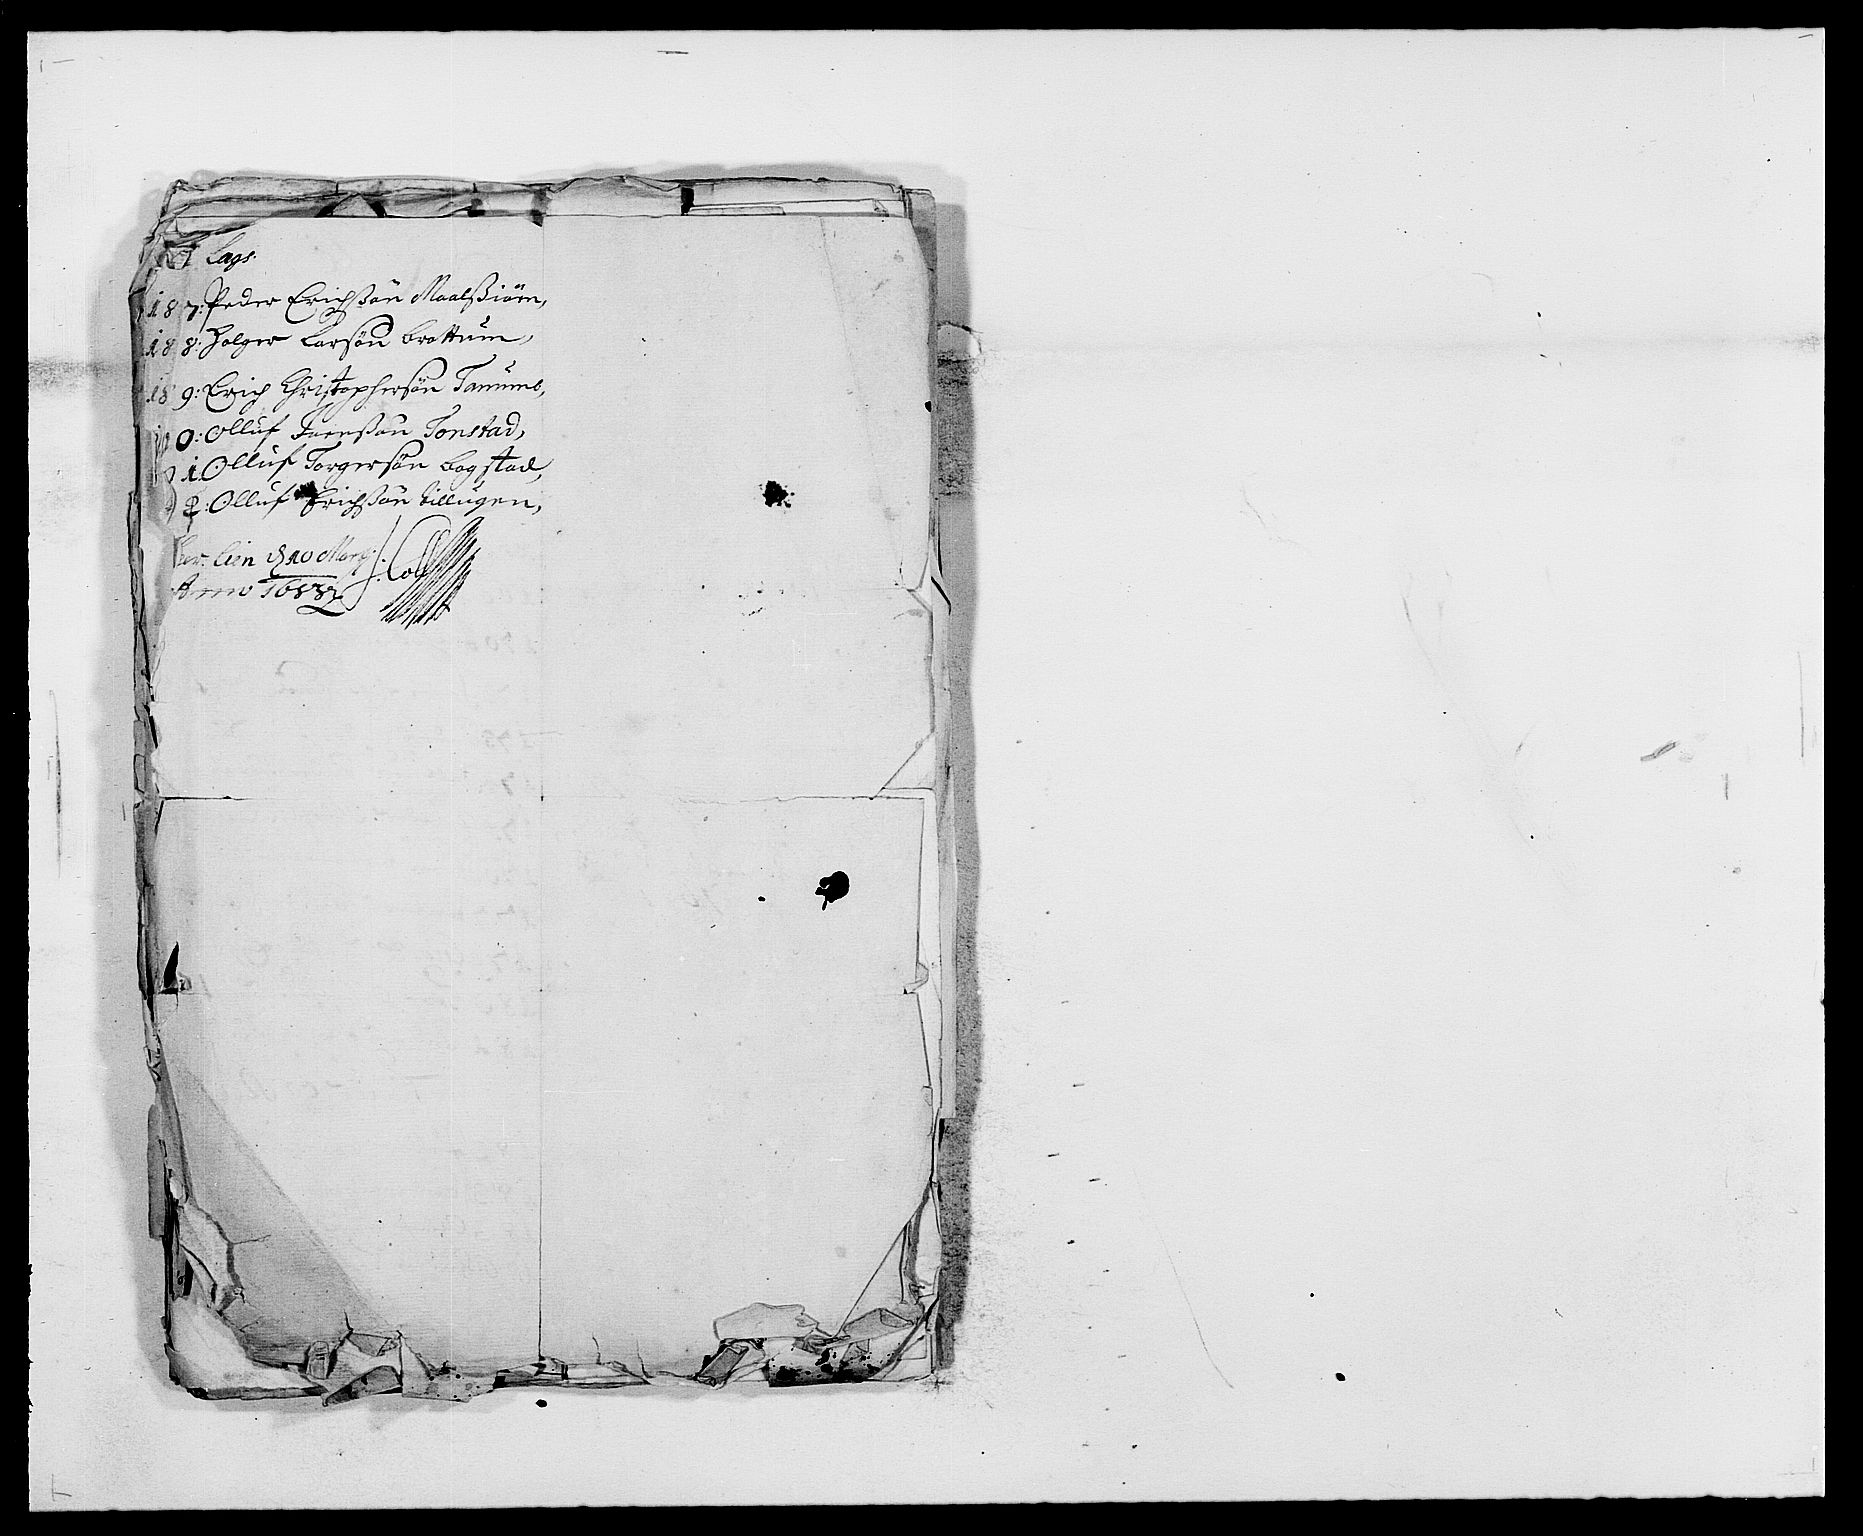 Lags
187: Peder Erichßøn Maalßiøen,
188: Holger Larsøn brottum,
189: Erich Christophersøn
0: Olluf Joenßøn Tonstad,
1 Olluf Torgersøn bogstad,
2: Olluf Erichßøn billugen,
10 Marty
Anno 1688